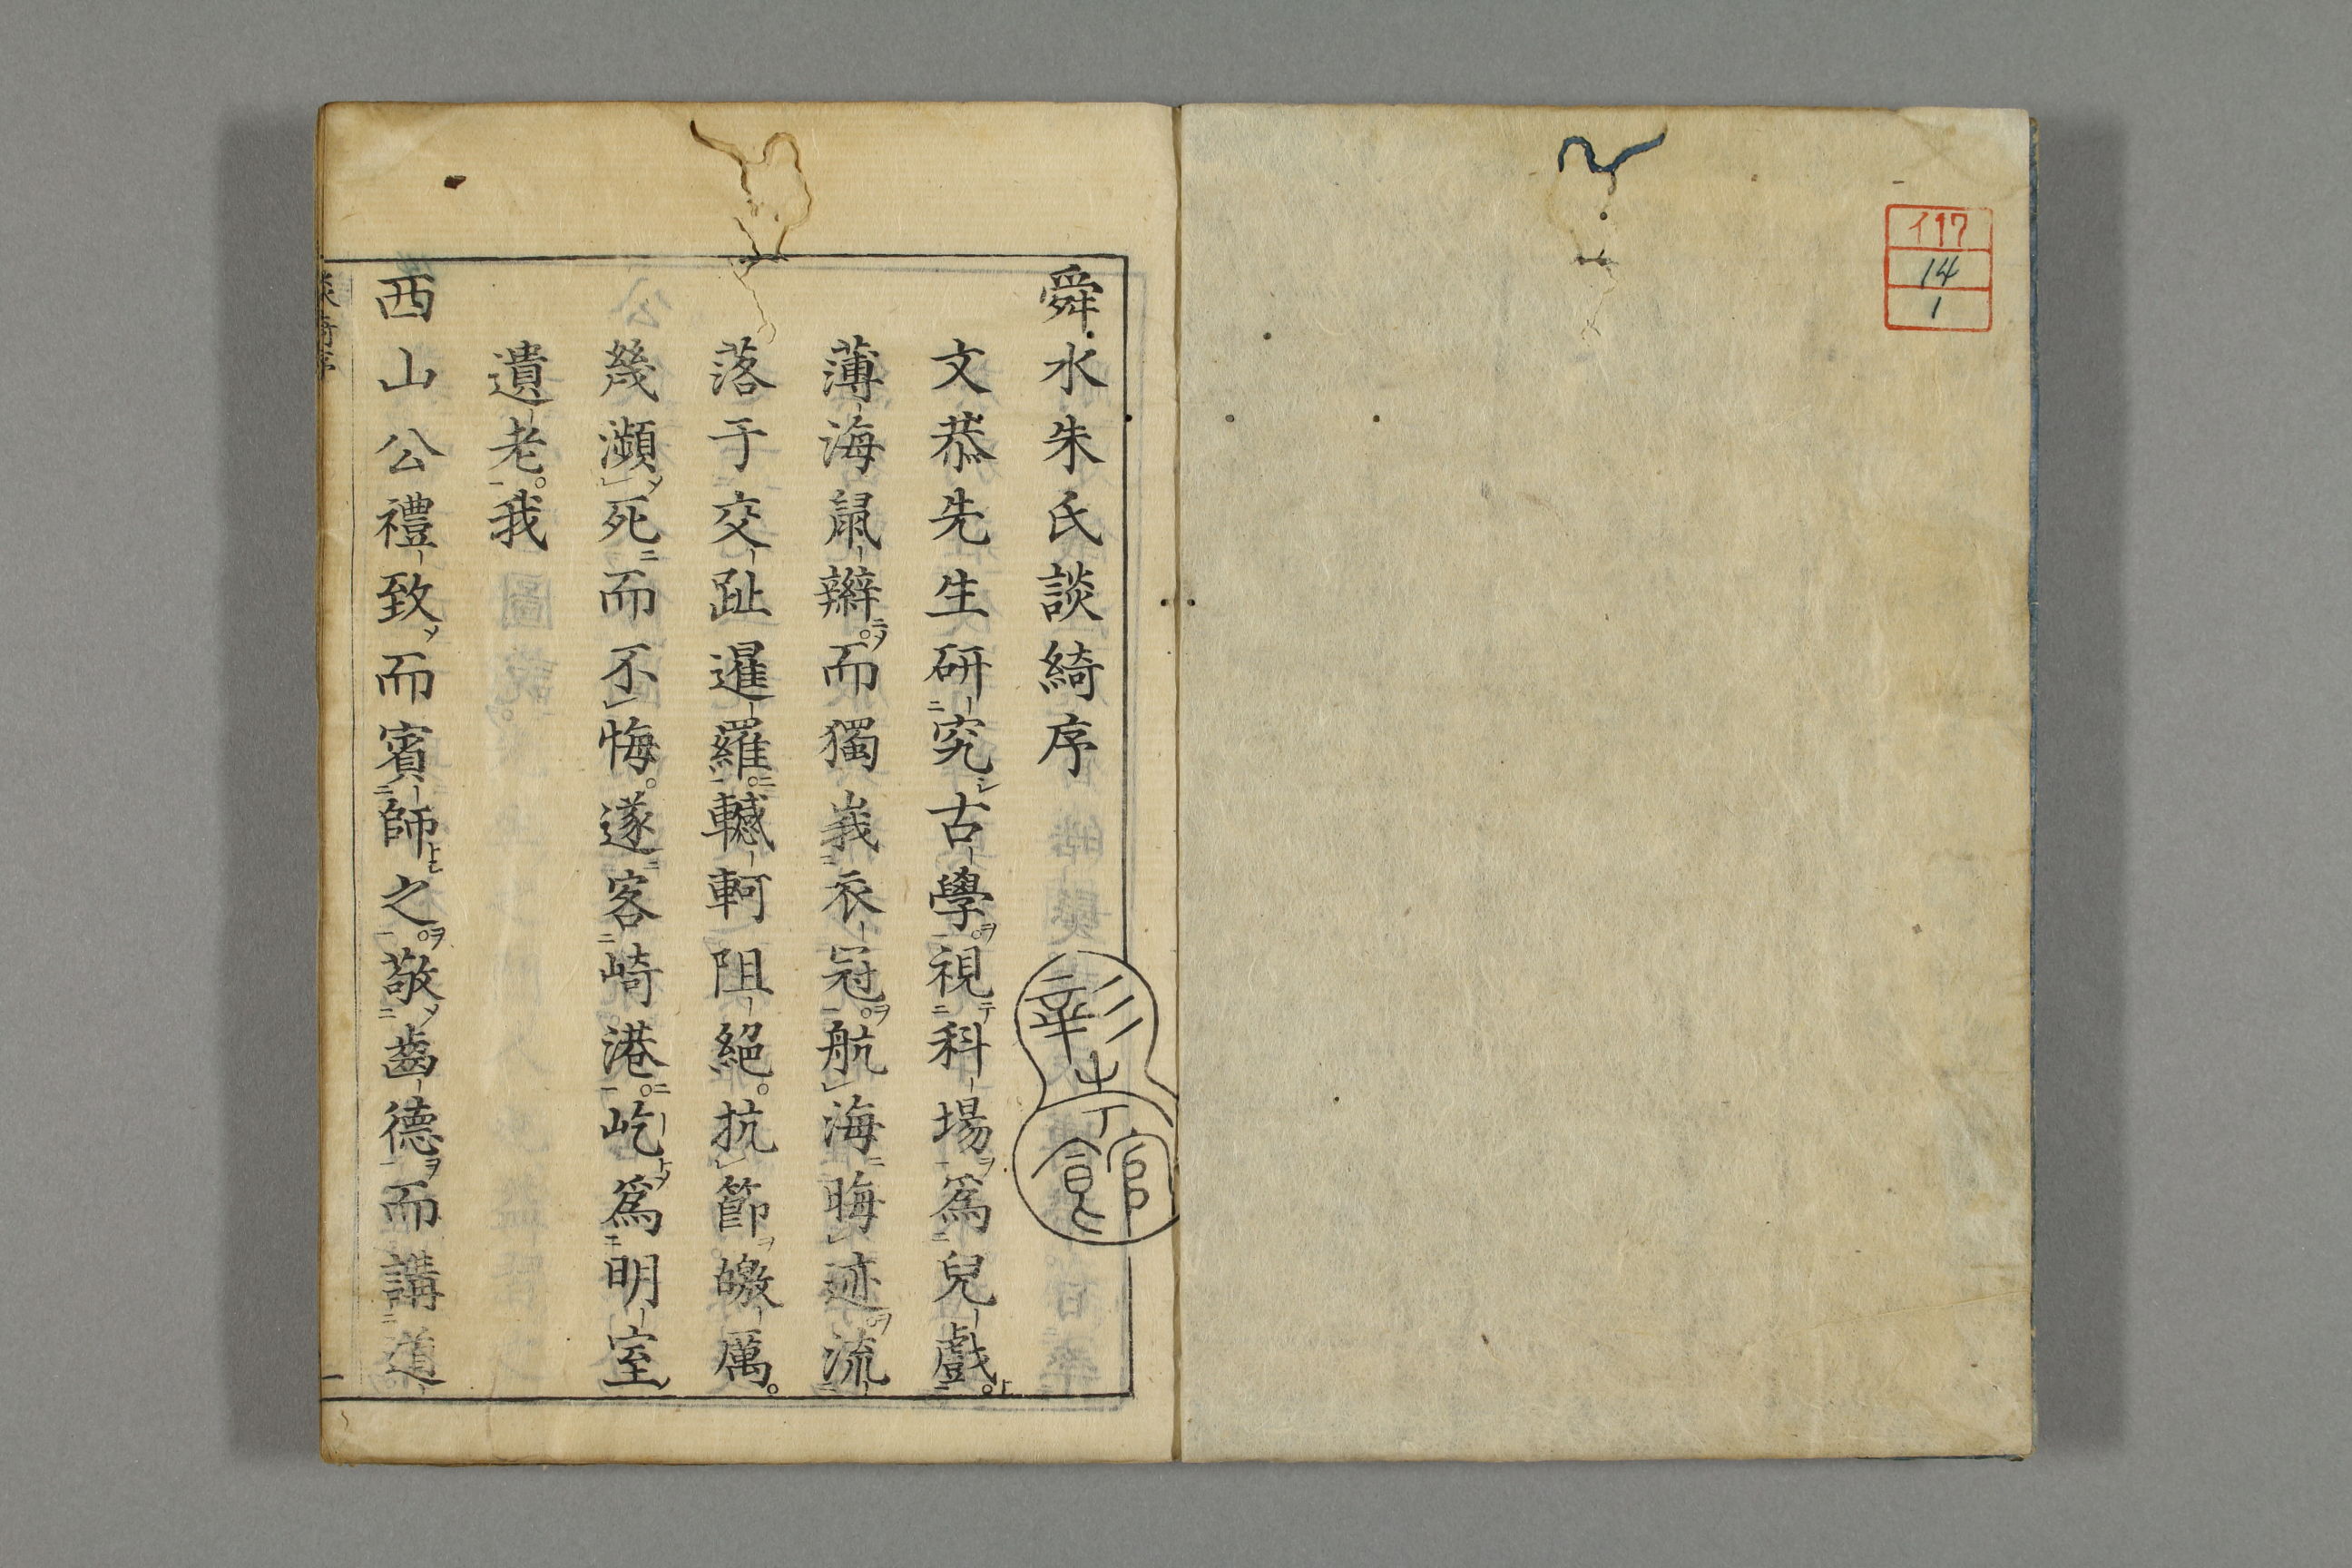 イ17
14
1
舜水朱氏談綺序
文恭先生研究古學視科場爲兒戲
薄海鼠辮而獨峩衣冠航海晦迹流
落于交趾暹羅轗軻阻絕抗節皦厲
幾瀕死而不悔遂客崎港屹爲明室
遺老我
西山公禮致而賓師之敬齒德而講道
彰考館
一